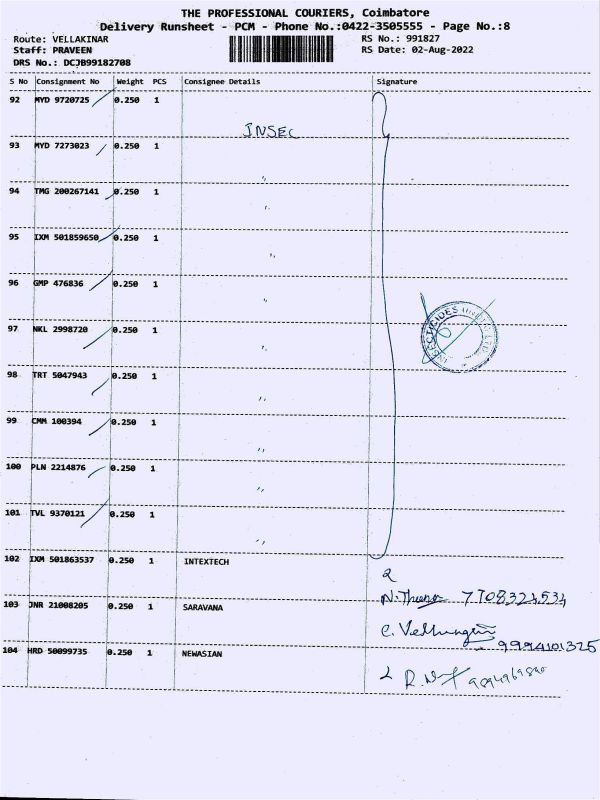 THE PROFESSIONAL COURIERS, Coimbatore
Delivery Runsheet - PCM - Phone No.:0422-3505555 - Page No.:8
Route: VELLAKINAR RS No.: 991827
Staff: PRAVEEN RS Date: 02-Aug-2022
DRS No.: DCJB99182708
S No Consignment No Weight PCS Consignee Details Signature
92 MYD 9720725 0.250 1
INSEC
93 MYD 7273023 0.250 1
"
94 TMG 200267141 0.250 1
"
95 IXM 501859650 0.250 1
"
96 GMP 476836 0.250 1
"
97 NKL 2998720 0.250 1
"
INSECTICIDES
98 TRT 5047943 0.250 1
"
99 CMM 100394 0.250 1
"
100 PLN 2214876 0.250 1
"
101 TVL 9370121 0.250 1
"
102 IXM 501863537 0.250 1 INTEXTECH
7708324534
103 JNR 21008205 0.250 1 SARAVANA
9994101325
104 HRD 50099735 0.250 1 NEWASIAN